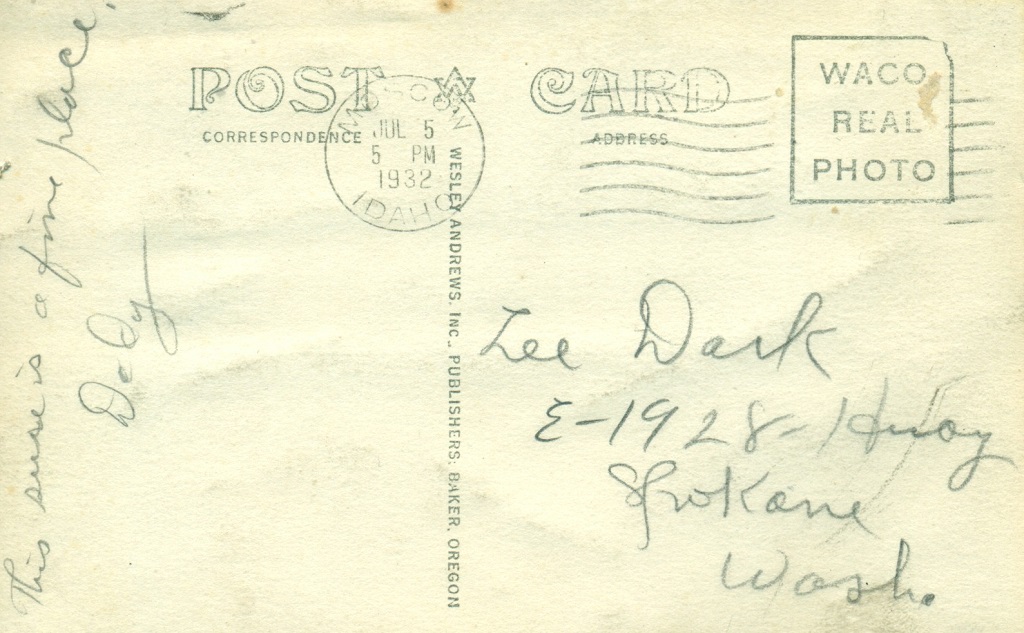 POST CARD
CORRESPONDENCE
ADDRESS
MOSCOW
JUL 5
5 PM
1932
IDAHO
WACO
REAL
PHOTO
WESLEY ANDREWS, INC., PUBLISHERS: BAKER, OREGON
This sure is a fine place.
Lee Dark
E-1928-
Spokane
Wash.